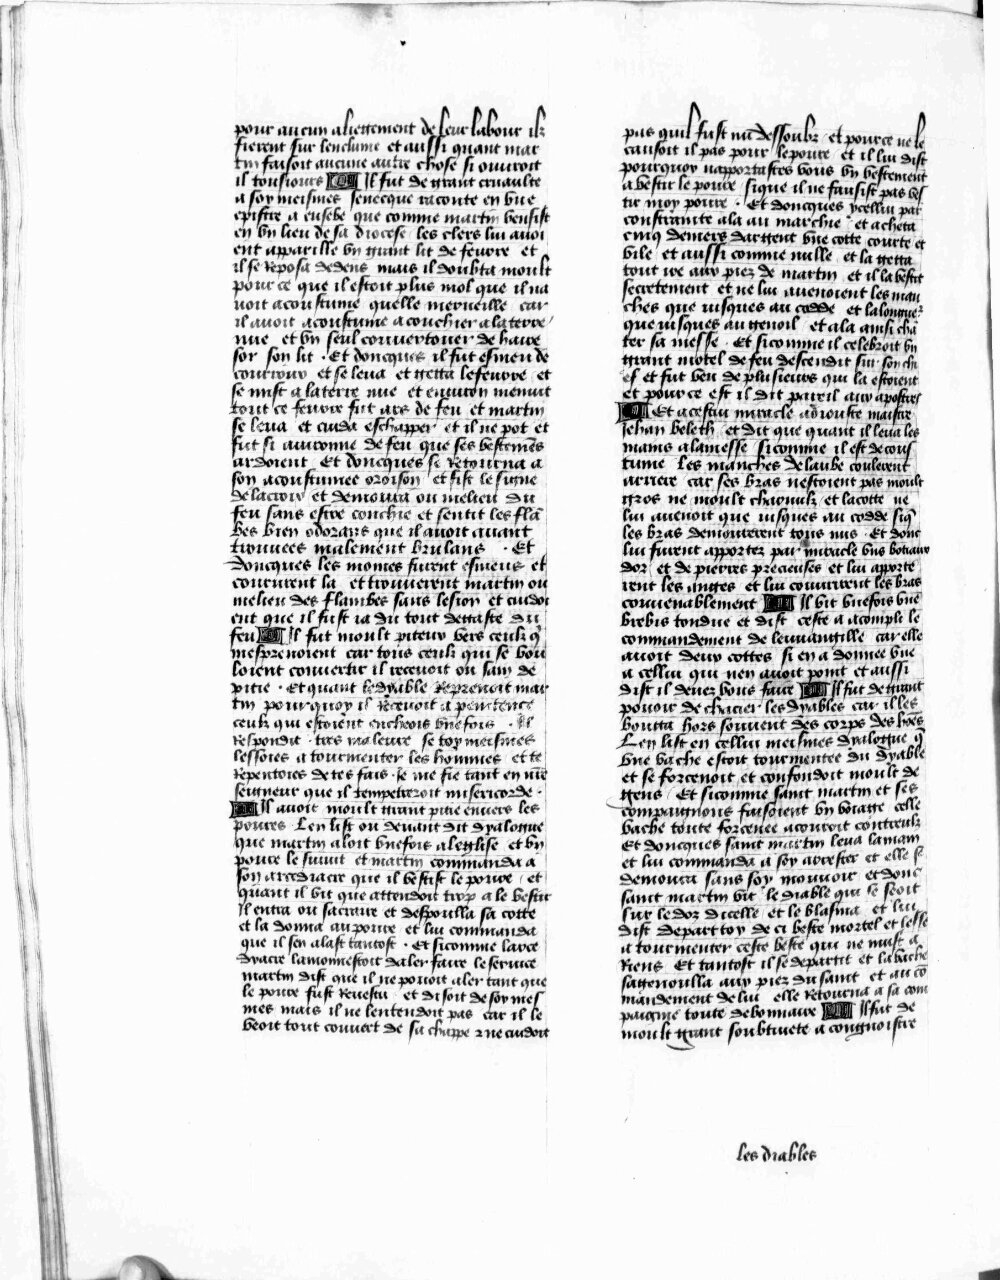 pour aucun aliegement de leur labour ilz
fierent sur lenclume et aussi quant mar
tin faisoit aucune autre chose si ouuroit
il tousiours Il fut de grant cruaulte
a soy meismes senecque raconte en vne
epistre a eusebe que comme martin vensist
en vn lieu de sa diocese les clers lui auoi
ent appareille vn grant lit de feurre et
il se reposa dedens mais il doubta moult
pour ce que il estoit plus mol que il na
uoit acoustume quelle merueille car
il auoit acoustume a couchier a la terre
nue et vn seul couuertouer de haire
sor son lit . Et doncques il fut esmeu de
courrouz et se leua et getta le feurre et
se mist a la terre nue et enuiron menuit
tout ce feurre fut ars de feu et martin
se leua et cuida eschapper et il ne pot et
fut si auironne de feu que ses vestemens
ardoient Et doncques se retourna a
son acoustumee oroison et fist le signe
de la croix et demoura ou melieu du
feu sans estre couchie et sentit les flā
bes bien odorans que il auoit auant
trouuees malement brulans . Et
doncques les moines furent esmeus et
coururent la et trouuerent martin ou
melieu des flambes sans lesion et cuidoi
ent que il fust ia du tout degaste du
feu Il fut moult piteux vers ceulx q̄
mesprenoient car tous ceulx qui se vou
loient conuertir il receuoit ou sain de
pitie . Et quant le dyable reprenoit mar
tin pourquoy il receuoit a penitence
ceulx qui estoient encheois vnefois . Il
respondit . tres maleure se toy meismes
lessoies a tourmenter les hommes et te
repentoies de tes fais . Je me fie tant en nrē
seigneur que il tempetreroit misericorde .
Il auoit moult grant pitie enuers les
poures . Len list ou deuant dit dyalogue
que martin aloit vnefois a leglise et vn
poure le suiuit et martin commanda a
son arcediacre que il vestist le poure et
quant il vit que attendoit trop a le vestir
Il entra ou sacraire et despoulla sa cotte
et la donna au poure et lui commanda
que il sen alast tantost . Et sicomme larce
dyacre lamonnestoit daler faire le seruice
martin dist que il ne pouoit aler tant que
le poure fust reuestu et disoit de soy mes
mes mais il ne lentendoit pas car il le
veoit tout couuert de sa chappe 2 ne cuidoit
pas quil fust nu dessoubz et pource ne le
causoit il pas pour le poure et il lui dist
pourquoy napportastes vous vn vestement
a vestir le poure sique il ne fausist pas ves
tir moy poure . Et doncques ycellui par
constrainte ala au marchie et acheta
cinq deniers dargent vne cotte courte et
vile et aussi comme nulle et la getta
tout ire aux piez de martin et il la vestit
secretement et ne lui auenoient les man
ches que iusques au codde et la longuer
que iusques au genoil et ala ainsi chā
ter sa messe . Et sicomme il celebroit vn
grant motel de feu descendit sur son chi
ef et fut veu de plusieurs qui la estoient
et pour ce est il dit pareil aux apostres
Et a cestui miracle adiouste maistre
Jehan beleth et dit que quant il leua les
mains a la messe sicomme il est de cous
tume les manches de laube coulerent
arriere car ses bras nestoient pas moult
gros ne moult charnulz et la cotte ne
lui auenoit que iusques au codde siq̄
les bras demourerent tous nus . Et donc
lui furent apportez par miracle vns botiaux
dor et de pierres precieuses et lui apporte
rent les anges et lui couurirent les bras
conuenablement Il vit vnefois vne
brebis tondue et dist ceste a acompli le
commandement de leuuangille car elle
auoit deux cottes si en a donnee vne
a cellui qui nen auoit point et aussi
dist il deuez vous faire Il fut de grant
pouoir de chacier les dyables car il les
bouta hors souuent des corps des hōes
Len list en cellui meismes dyalogue q̄
vne vache estoit tourmentee du dyable
et se forcenoit et confondoit moult de
gens Et sicomme saint martin et ses
compaignons faisoient vn voiage celle
vache toute forcenee acouroit contreulz
Et doncques saint martin leua la main
et lui commanda a soy arrester et elle se
demoura sans soy mouuoir et donc
saint martin vit le diable qui se seoit
sur le doz dicelle et le blasma et lui
dist depart toy de ci beste mortel et lesse
a tourmenter ceste beste qui ne nuist a
riens Et tantost il se departit et la vache
sagenoulla aux piez du saint et au cō
mandement de lui elle retourna a sa com
paignie toute debonnaire Il fut de
moult grant soubtiuete a congnoistre
les diables